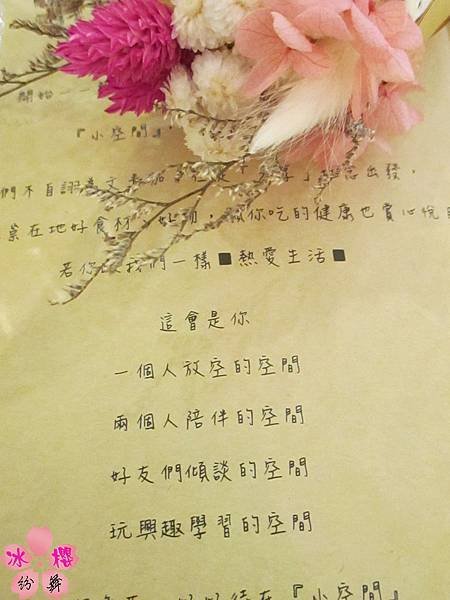 開始
『小空間』
們不自詡為文 出發，
菜在地好食材 你吃的健康也賞心悅
若你 我們一樣■熱愛生活■
這會是你
一個人放空的空間
兩個人陪伴的空間
好友們傾談的空間
玩興趣學習的空間
在『小空間』
冰櫻
紛舞